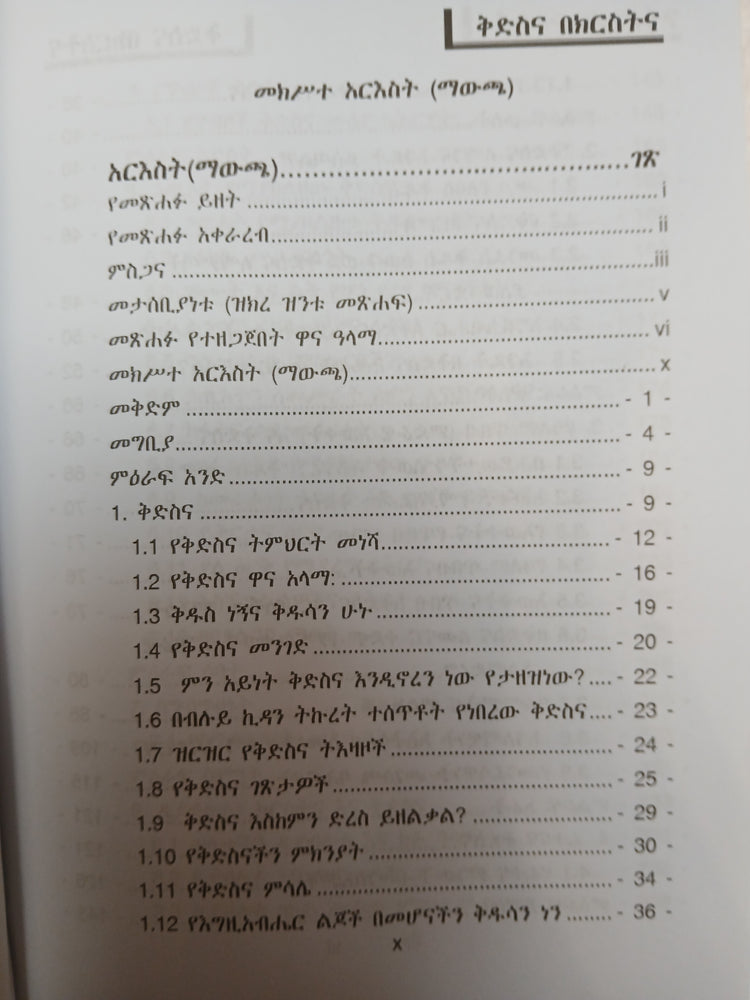 ቅድስና በክርስትና
መክሥተ አርእስት (ማውጫ)
አርእስት(ማውጫ)..........................................ገጽ
የመጽሐፉ ይዘት ..........................................i
የመጽሐፉ አቀራረብ..........................................ii
ምስጋና ..........................................iii
መታሰቢያነቱ (ዝክረ ዝንቱ መጽሐፍ) ..........................................v
መጽሐፉ የተዘጋጀበት ዋና ዓላማ..........................................vi
መክሥተ አርእስት (ማውጫ)..........................................x
መቅድም .......................................... - 1 -
መግቢያ.......................................... - 4 -
ምዕራፍ አንድ .......................................... - 9 -
1. ቅድስና .......................................... - 9 -
1.1 የቅድስና ትምህርት መነሻ.................................. - 12 -
1.2 የቅድስና ዋና አላማ: .................................. - 16 -
1.3 ቅዱስ ነኝና ቅዱሳን ሁኑ .................................. - 19 -
1.4 የቅድስና መንገድ .................................. - 20 -
1.5 ምን አይነት ቅድስና እንዲኖረን ነው የታዘዝነው? .... - 22 -
1.6 በብሉይ ኪዳን ትኩረት ተሰጥቶት የነበረው ቅድስና.... - 23 -
1.7 ዝርዝር የቅድስና ትእዛዞች .................................. - 24 -
1.8 የቅድስና ገጽታዎች .................................. - 25 -
1.9 ቅድስና እስከምን ድረስ ይዘልቃል? ...................... - 29 -
1.10 የቅድስናችን ምክንያት .................................. - 30 -
1.11 የቅድስና ምሳሌ .................................. - 34 -
1.12 የእግዚአብሔር ልጆች በመሆናችን ቅዱሳን ነን ........ - 36 -
x